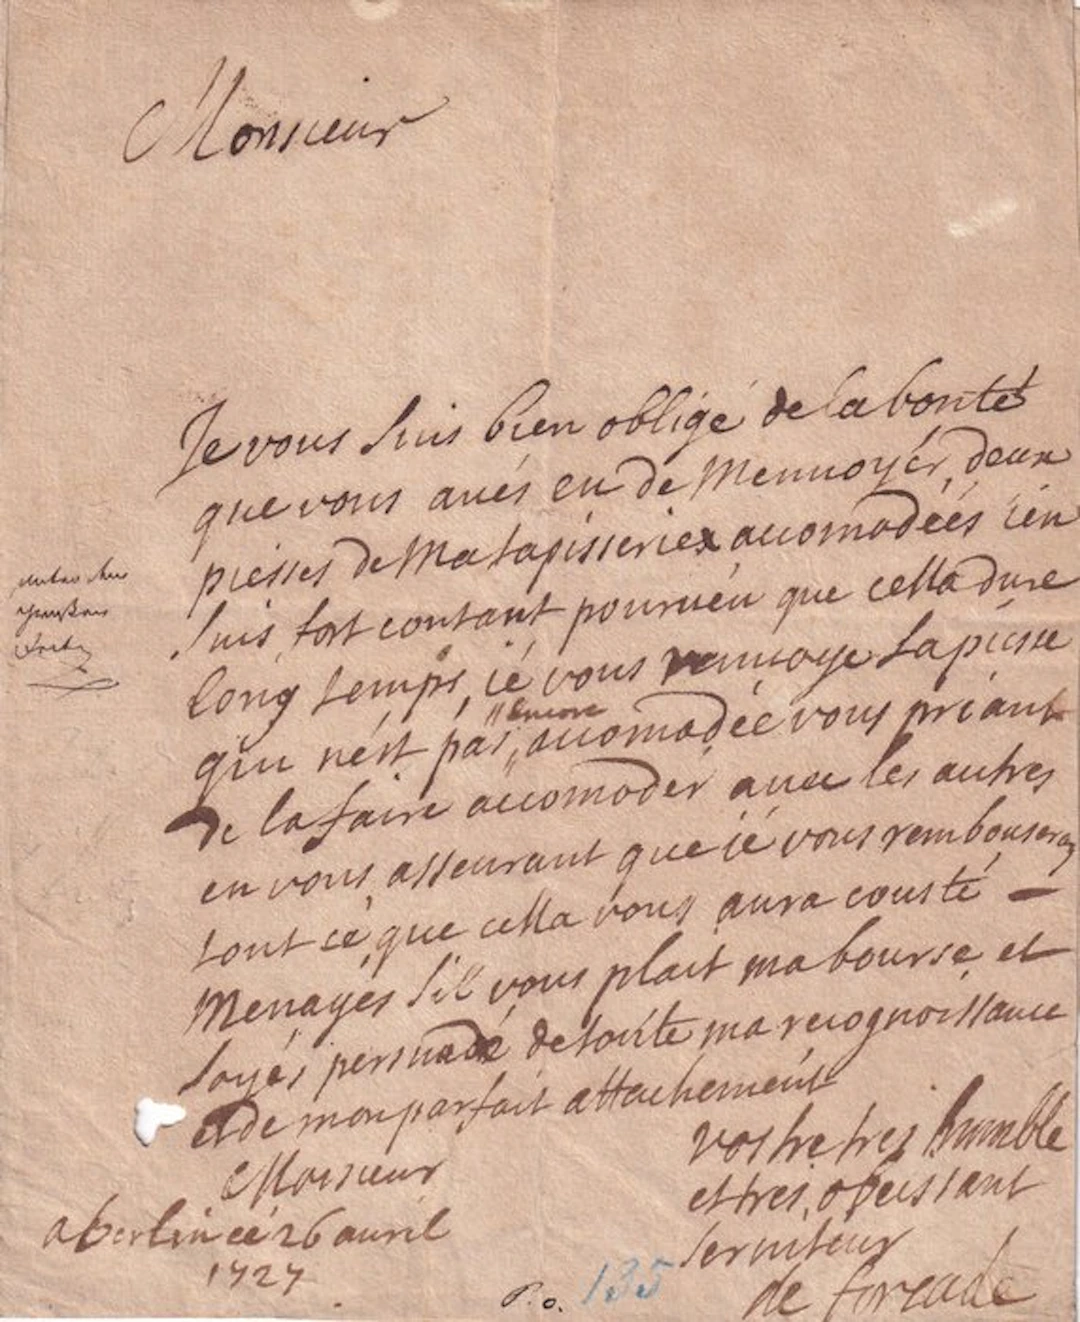 Monsieur
Je vous suis bien obligé de la bonté
que vous avés eu de M'envoyér, deux
piesses de Ma tapisserie accomodéés i'en
suis fort contant pourveu que cella dure
long temps, ié vous renvoye la piesse
qui nést pas encore accomodéé vous priant
de la faire accomodér avec les autres
en vous asseurant que ié vous rembourseray
tout cé que cella vous aura cousté —
Menagés s'il vous plait ma bourse, et
soyés persuadé de toutte ma recognoissance
et de mon parfait attachemént
Monsieur
vostre tres humble
et tres obeissant
serviteur
de forcade
a berlin cé 26 avril
1727
P. o.
135